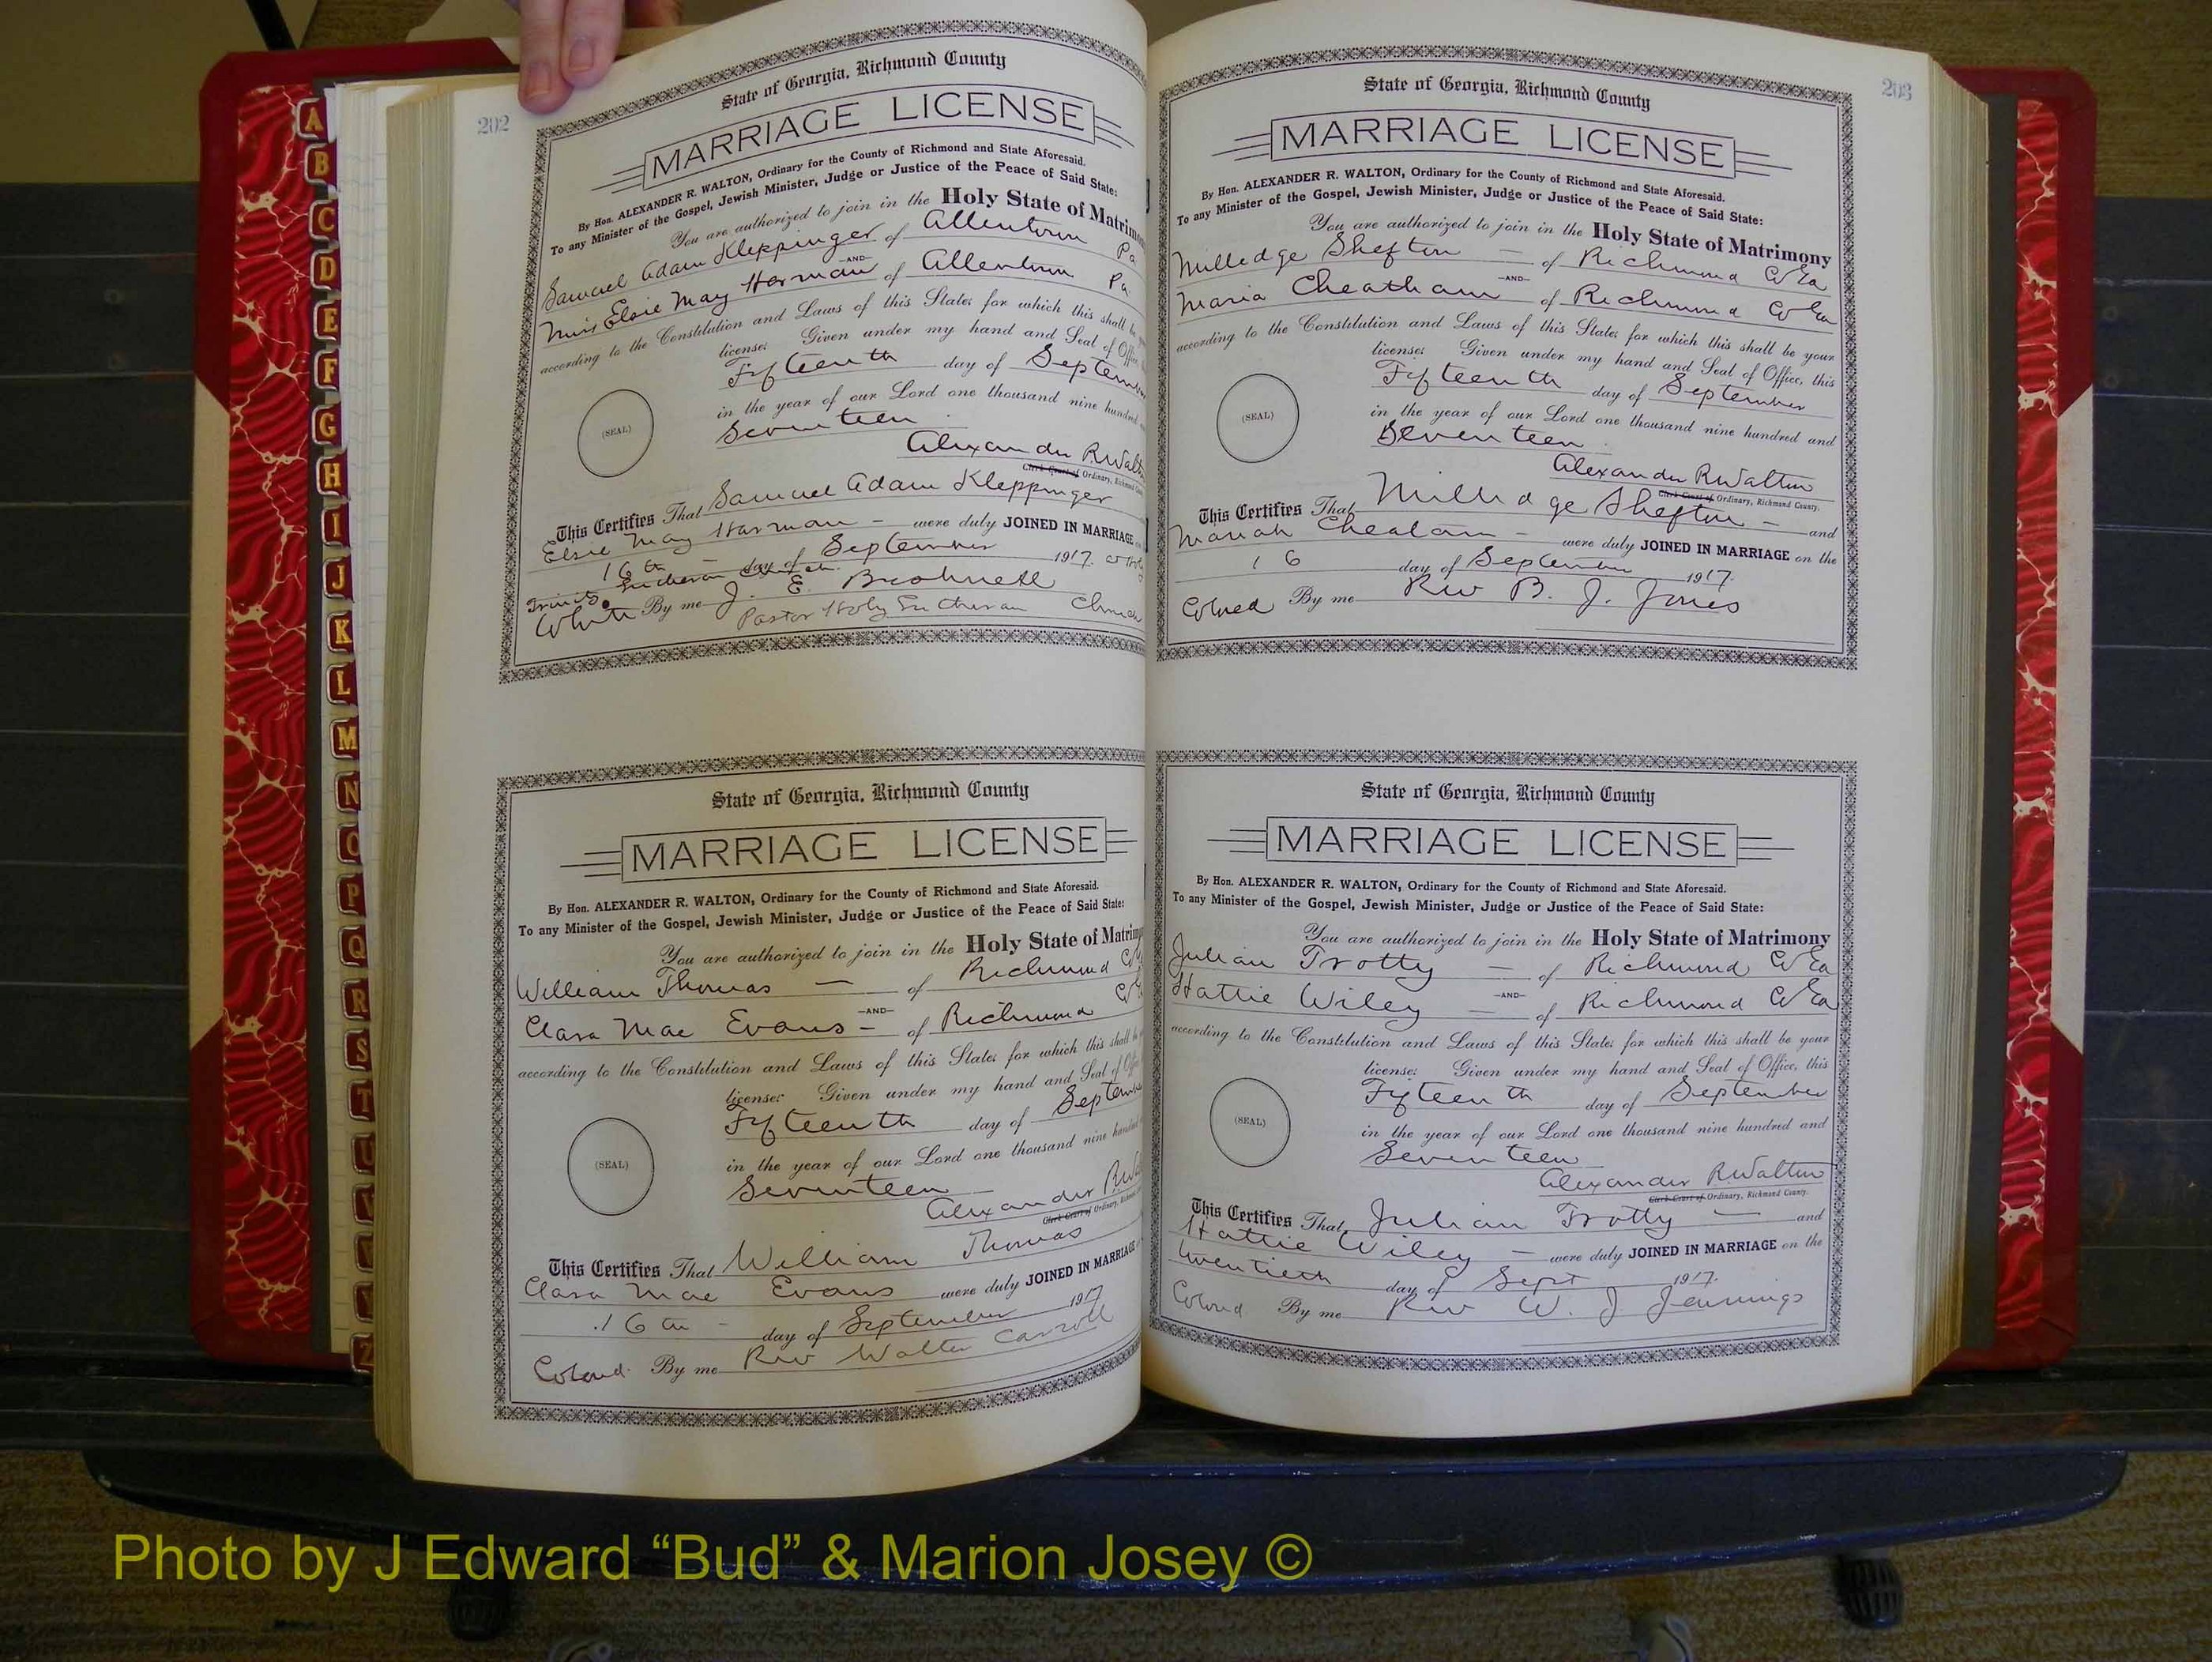 202
State of Georgia, Richmond County
MARRIAGE LICENSE
By Hon. ALEXANDER R. WALTON, Ordinary for the County of Richmond and State Aforesaid.
To any Minister of the Gospel, Jewish Minister, Judge or Justice of the Peace of Said State:
You are authorized to join in the Holy State of Matrimo
Samuel Adam Kleppinger of Allentown Pa
—AND—
Miss Elsie May Harman of Allentown Pa
according to the Constitution and Laws of this State; for which this shall be
license: Given under my hand and Seal of Office
Fifteenth day of September
(SEAL)
in the year of our Lord one thousand nine hundred
Seventeen
Alexander R Walt
Clerk Court of Ordinary, Richmond
This Certifies That Samuel Adam Kleppinger
Elsie May Harman - were duly JOINED IN MARRIAGE
16th day of September 1917.
Trinity Lutheran Church
White By me J. E.
Pastor Holy Lutheran Church
State of Georgia, Richmond County
MARRIAGE LICENSE
By Hon. ALEXANDER R. WALTON, Ordinary for the County of Richmond and State Aforesaid.
To any Minister of the Gospel, Jewish Minister, Judge or Justice of the Peace of Said State:
You are authorized to join in the Holy State of Matrim
William Thomas — of Richmond Co
—AND—
Clara Mae Evans - of Richmond Co
according to the Constitution and Laws of this State; for which this shall be
license: Given under my hand and Seal of Office
Fifteenth day of Septem
(SEAL)
in the year of our Lord one thousand nine hundred
Seventeen
Alexander R Wal
Clerk Court of Ordinary, Richmond
This Certifies That William Thomas
Clara Mae Evans were duly JOINED IN MARRIAGE
16th - day of September 1917
Colored By me Rev Walter Carroll
203
State of Georgia, Richmond County
MARRIAGE LICENSE
By Hon. ALEXANDER R. WALTON, Ordinary for the County of Richmond and State Aforesaid.
To any Minister of the Gospel, Jewish Minister, Judge or Justice of the Peace of Said State:
You are authorized to join in the Holy State of Matrimony
Milledge Shefton — of Richmond Co Ga
—AND—
Maria Cheatham of Richmond Co Ga
according to the Constitution and Laws of this State; for which this shall be your
license: Given under my hand and Seal of Office, this
Fifteenth day of September
(SEAL)
in the year of our Lord one thousand nine hundred and
Seventeen
Alexander R Walton
Clerk Court of Ordinary, Richmond County.
This Certifies That Milledge Shefton - and
Mariah Cheatam - were duly JOINED IN MARRIAGE on the
16 day of September 1917.
Colored By me Rev B. J. Jones
State of Georgia, Richmond County
MARRIAGE LICENSE
By Hon. ALEXANDER R. WALTON, Ordinary for the County of Richmond and State Aforesaid.
To any Minister of the Gospel, Jewish Minister, Judge or Justice of the Peace of Said State:
You are authorized to join in the Holy State of Matrimony
Julian Trotty — of Richmond Co Ga
—AND—
Hattie Wiley — of Richmond Co Ga
according to the Constitution and Laws of this State; for which this shall be your
license: Given under my hand and Seal of Office, this
Fifteenth day of September
(SEAL)
in the year of our Lord one thousand nine hundred and
Seventeen
Alexander R Walton
Clerk Court of Ordinary, Richmond County.
This Certifies That Julian Trotty — and
Hattie Wiley — were duly JOINED IN MARRIAGE on the
twentieth day of Sept 1917.
Colored By me Rev W. J. Jennings
A
B
C
D
E
F
G
H
I
J
K
L
M
N
O
P
Q
R
S
T
U
V
W
Y
Z
Photo by J Edward “Bud” & Marion Josey ©